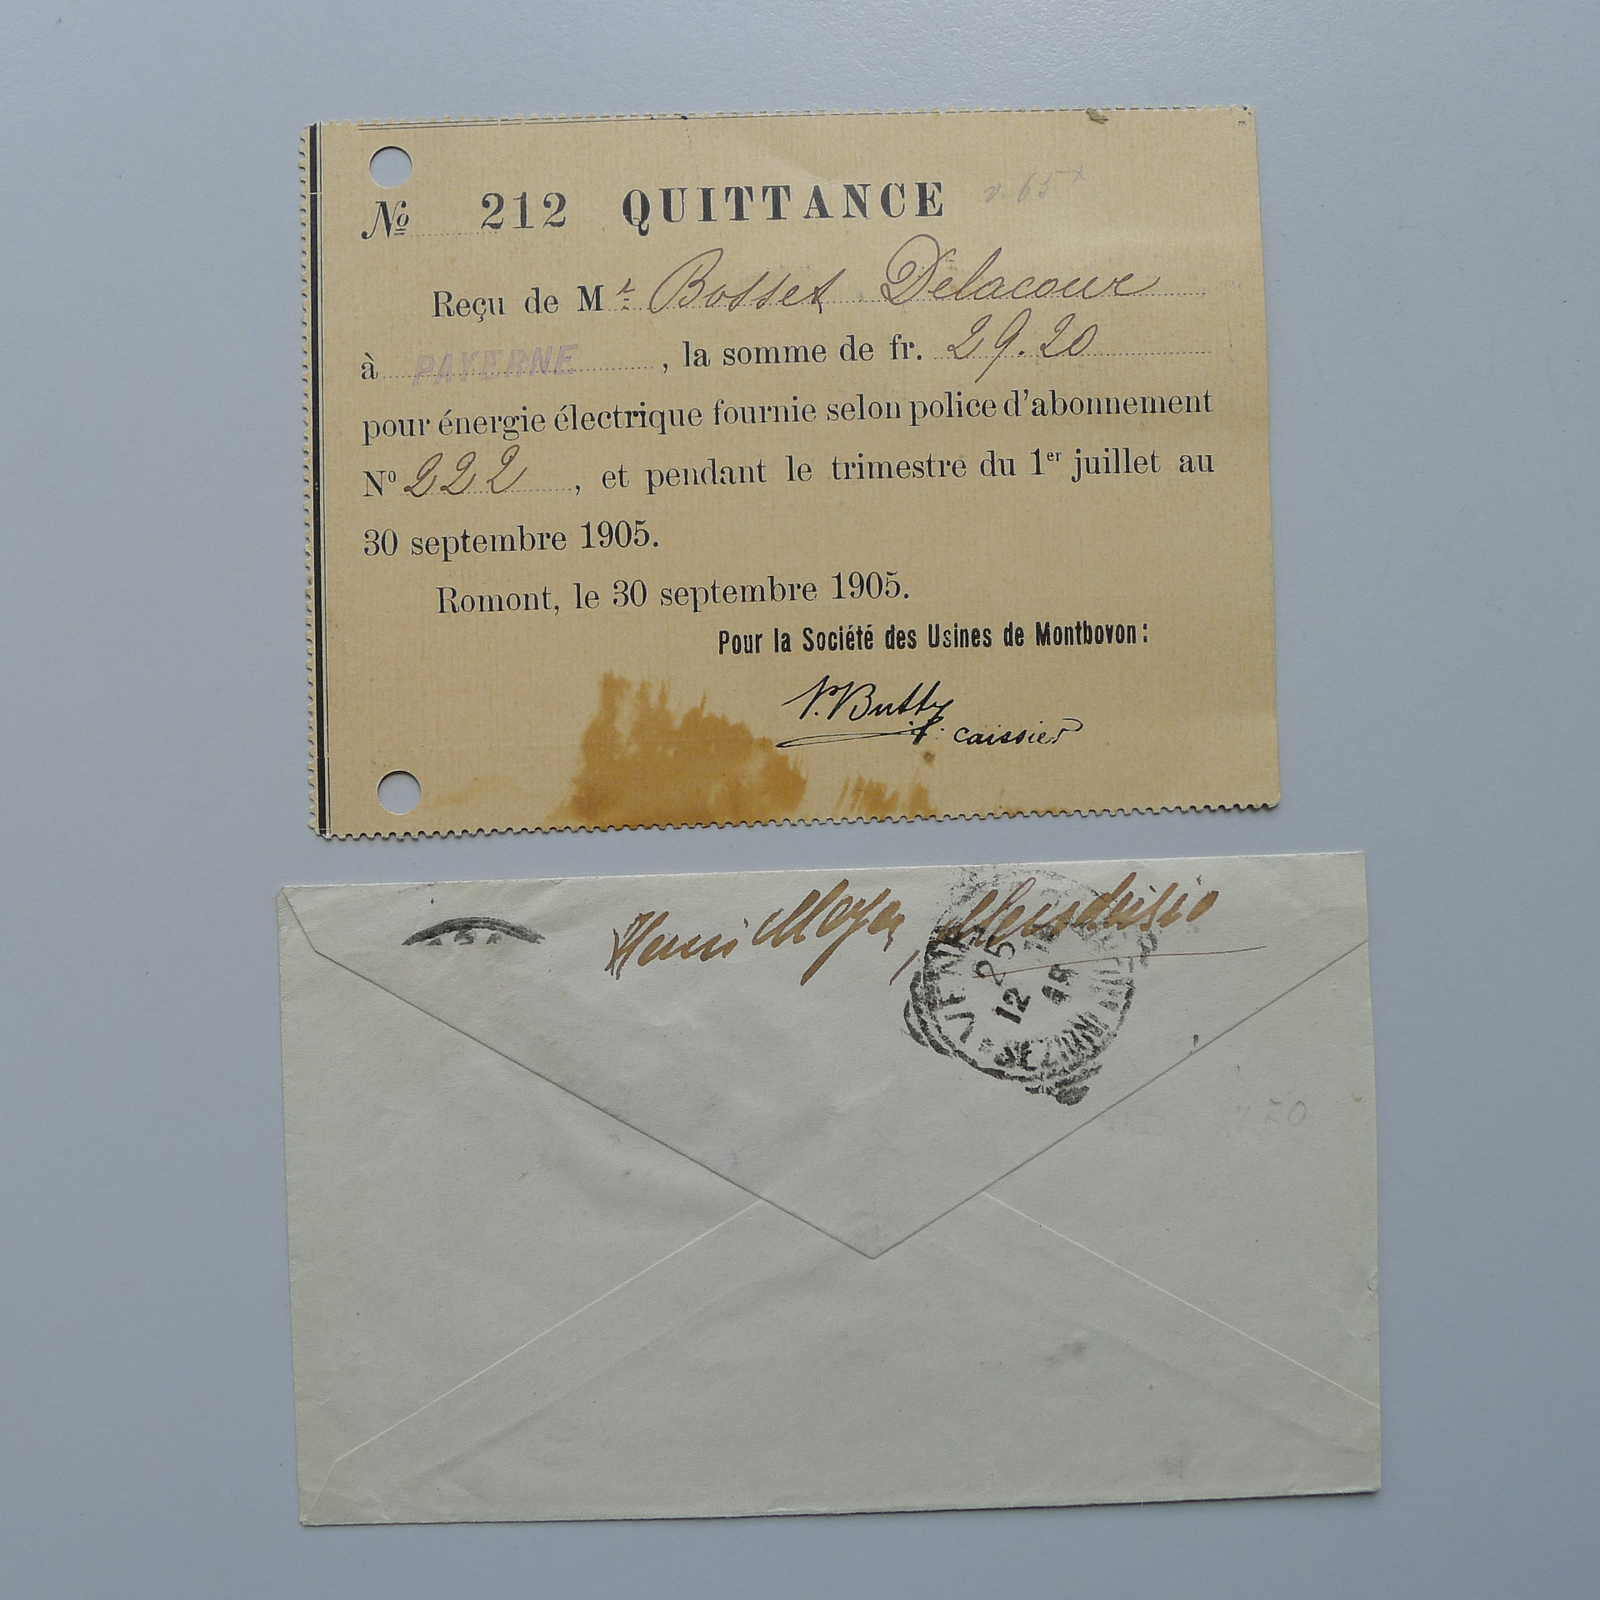 Nº 212 QUITTANCE
Reçu de Mr Bosset Delacour
à PAYERNE, la somme de fr. 29.20
pour énergie électrique fournie selon police d'abonnement
Nº 222, et pendant le trimestre du 1er juillet au
30 septembre 1905.
Romont, le 30 septembre 1905.
Pour la Société des Usines de Montbovon:
Butty
caissier
Henri Meyer, Mendrisio
25
12